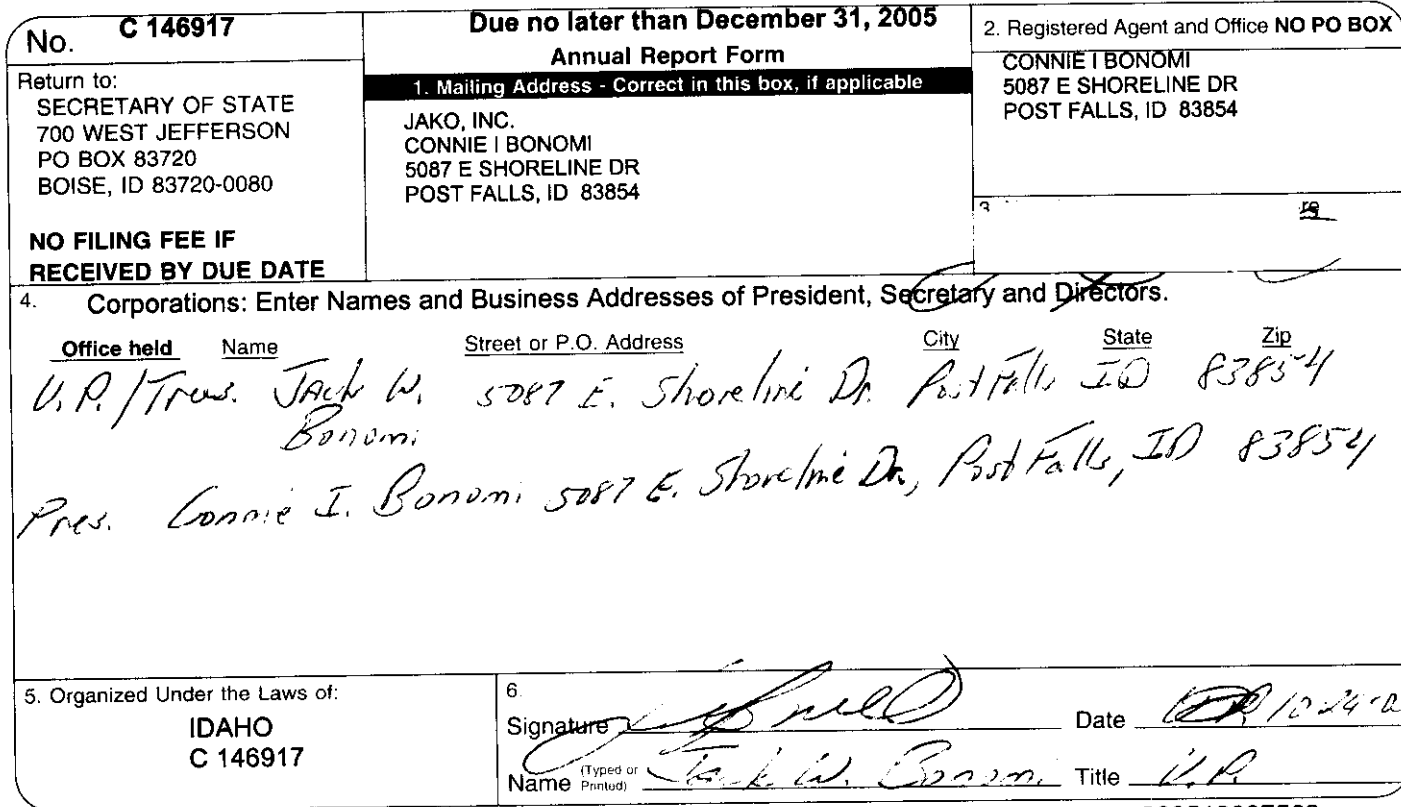 No. C 146917
Return to:
SECRETARY OF STATE
700 WEST JEFFERSON
PO BOX 83720
BOISE, ID 83720-0080
NO FILING FEE IF
RECEIVED BY DUE DATE
Due no later than December 31, 2005
Annual Report Form
1. Mailing Address - Correct in this box, if applicable
JAKO, INC.
CONNIE I BONOMI
5087 E SHORELINE DR
POST FALLS, ID 83854
2. Registered Agent and Office NO PO BOX
CONNIE I BONOMI
5087 E SHORELINE DR
POST FALLS, ID 83854
3
4. Corporations: Enter Names and Business Addresses of President, Secretary and Directors.
Office held Name Street or P.O. Address City State Zip
V.P./Treas. Jack W. 5087 E. Shoreline Dr. Post Falls ID 83854
Bonomi
Pres. Connie I. Bonomi 5087 E. Shoreline Dr., Post Falls, ID 83854
5. Organized Under the Laws of:
IDAHO
C 146917
6.
Signature Date
Name (Typed or Printed) Jack W. Bonomi Title V.P.